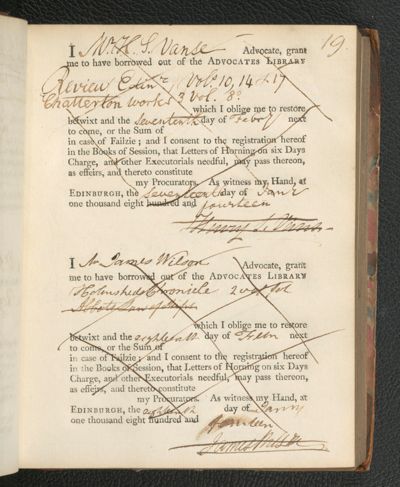 19.
I Mr. H. S. Vanse Advocate, grant
me to have borrowed out of the ADVOCATES LIBRARY
Review Edinr. Vol. 10, 14 & 17
Chatterton works 3 vol. 8o
which I oblige me to restore
betwixt and the seventeenth day of Febry next
to come, or the Sum of
in case of Failzie; and I consent to the registration hereof
in the Books of Session, that Letters of Horning on six Days
Charge, and other Executorials needful, may pass thereon,
as effeirs, and thereto constitute
my Procurators. As witness my Hand, at
EDINBURGH, the seventeenth day of Janr
one thousand eight hundred and fourteen
Henry
I Mr James Wilson Advocate, grant
me to have borrowed out of the ADVOCATES LIBRARY
Holinsheds Chronicle 2 vol fol
which I oblige me to restore
betwixt and the eighteenth day of Febry next
to come, or the Sum of
in case of Failzie; and I consent to the registration hereof
in the Books of Session, that Letters of Horning on six Days
Charge, and other Executorials needful, may pass thereon,
as effeirs, and thereto constitute
my Procurators. As witness my Hand, at
EDINBURGH, the eighteenth day of Janry
one thousand eight hundred and
fourteen
James Wilson